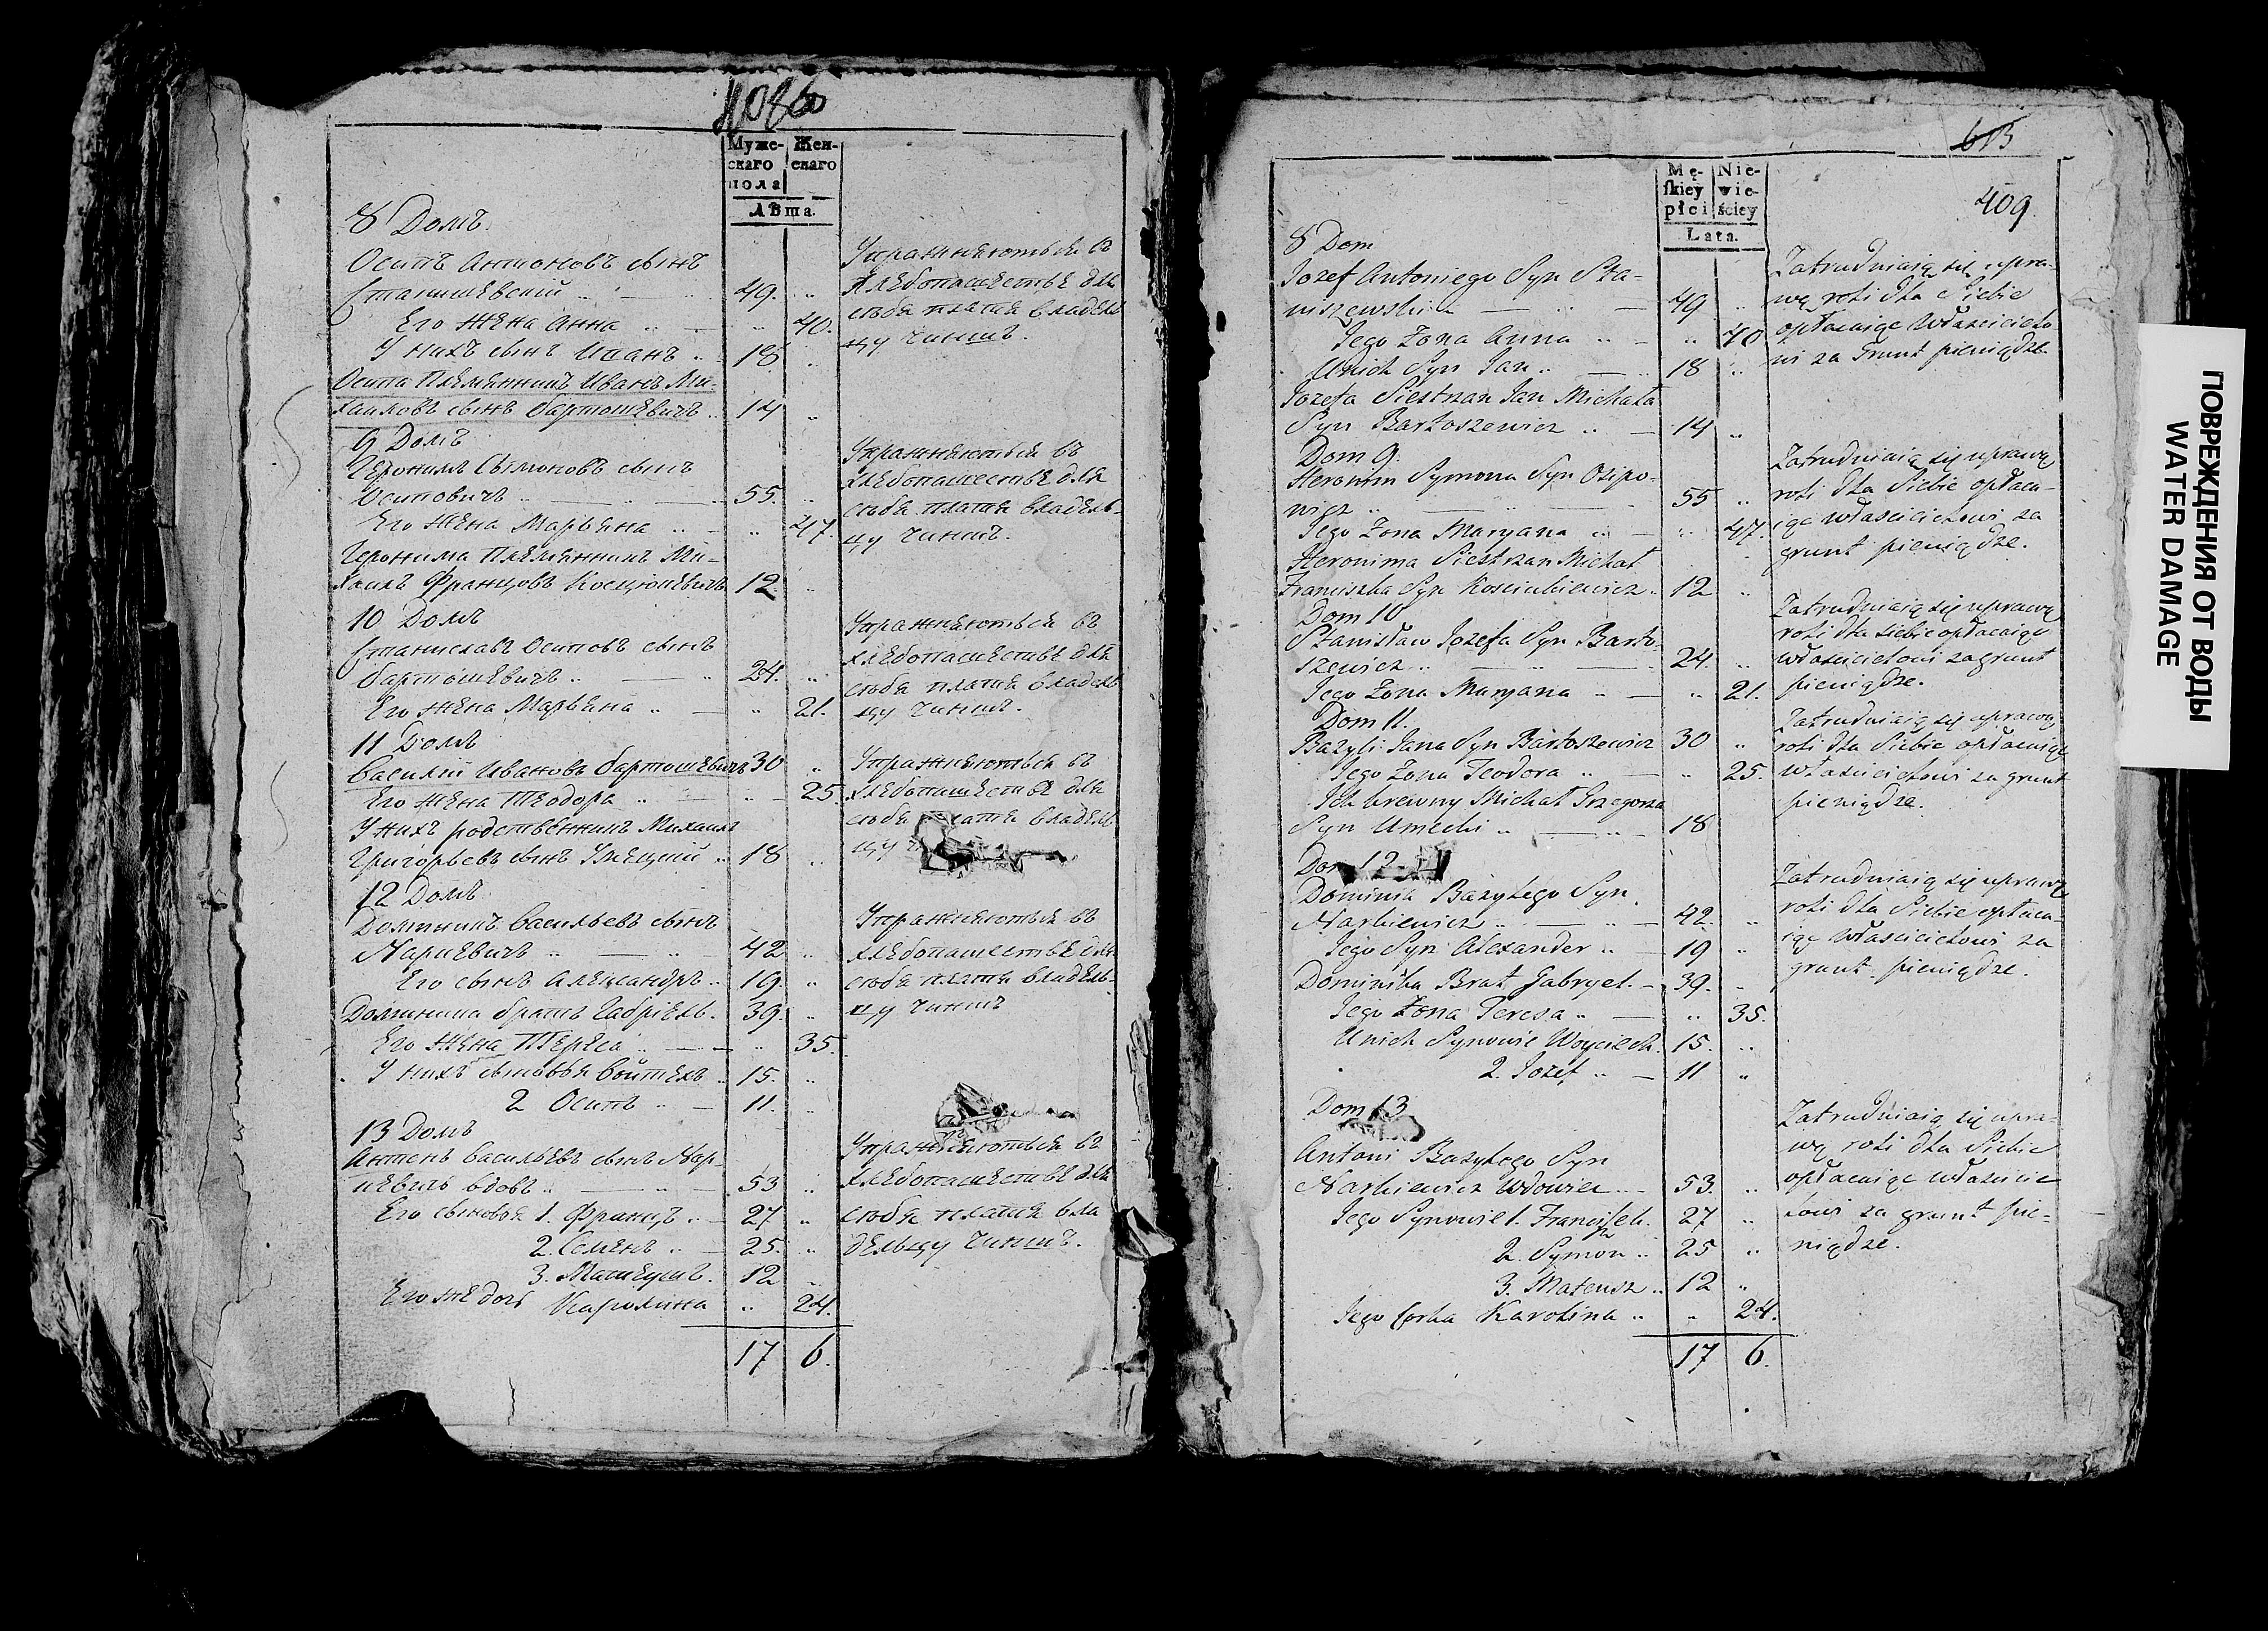 Муже-
скаго
пола
Жен-
скаго
Лѣта.
8 Домъ.
Осипъ Антоновъ сынъ
Станишевскій „ — „ 49. „
Его жена Анна „ — „ 40.
У нихъ сынъ Иванъ „ 18 „
Осипа племянникъ Иванъ Ми-
хаиловъ сынъ Бартошевичъ „ 14 „
Упражняются въ
хлебопашестве для
себя платя владель
цу чиншъ.
9 Домъ
Иеронимъ Семоновъ сынъ
Осиповичъ „ — 55. „
Его жена Марьяна „ — „ 47.
Иеронима племянникъ Ми-
хаилъ Францовъ Косцюкевичъ 12. „
Упражняются въ
хлебопашестве для
себя платя владель-
цу чиншъ.
10 Домъ
Станиславъ Осиповъ сынъ
Бартошевичъ „ — „ 24. „
Его жена Марьяна „ — „ 21.
Упражняются въ
хлебопашестве для
себя платя владель
цу чиншъ.
11 Домъ
Василій Ивановъ Бартошевичъ 30 „
Его жена Теодора „ — „ 25.
У нихъ родственникъ Михаилъ
Григорьевъ сынъ Умецкий „ 18 „
Упражняются въ
хлебопашестве для
себя платя владель
цу
12 Домъ
Доминикъ Васильевъ сынъ
Наркевичъ „ — „ 42 „
Его сынъ Александръ „ 19. „
Доминика братъ Габріель. 39. „
Его жена Тереса „ — „ 35.
У нихъ сыновья Войтехъ „ 15. „
2 Осипъ „ — 11. „
Упражняются въ
хлебопашестве для
себя платя владель-
цу чиншъ
13 Домъ
Антонъ Васильевъ сынъ Нар-
кевичъ вдовъ „ — „ 53 „
Его сыновья 1. Францъ „ — 27 „
2. Семенъ „ — 25. „
3. Матеушъ. 12 „
Его же дочь Каролина „ 24.
17 6.
Упражняются въ
хлебопашестве для
себя платя вла
дельцу чиншъ.
409
Mę-
skiey
płci
Nie-
wie-
ściey
Lata.
8 Dom
Jozef Antoniego Syn Sta-
niszewski „ — „ — 49 „
Jego Żona Anna „ — „ 40
Unich Syn Jan „ — „ 18 „
Jozefa Siestrzan Jan Michała
Syn Bartoszewicz „ — 14 „
Zatrudniaią się upra-
wą roli dla Siebie
opłacaiąc Właścicielo
wi za Grunt pieniądze.
Dom 9.
Heronim Symona Syn Osipo-
wicz „ — 55 „
Jego Żona Maryana „ — „ 47.
Heronima Siestrzan Michał
Franciszka Syn Kosciukiewicz „ 12 „
Zatrudniaią się uprawą
roli dla Siebie opłaca-
iąc właścicielowi za
grunt pieniądze.
Dom 10
Stanisław Jozefa Syn Barto-
szewicz „ — „ — 24. „
Jego Żona Maryana „ — „ 21.
Zatrudniaią się uprawą
roli dla siebie opłacaiąc
właścicielowi za grunt
pieniądze.
Dom 11.
Bazyli Jana Syn Bartoszewicz 30 „
Jego Żona Teodora „ — „ 25.
Ich krewny Michał Grzegorza
Syn Umecki „ — „ — 18
Zatrudniaią się uprawą
roli dla Siebie opłacaiąc
właścicielowi za grunt
pieniądze.
Dom 12
Dominik Bazylego Syn
Narkiewicz „ — „ — 42. „
Jego Syn Alexander „ — 19 „
Dominika Brat Gabryel. — 39. „
Jego Żona Teresa „ — „ 35.
Unich Synowie Woyciech. 15. „
2. Jozef „ — 11 „
Zatrudniaią się uprawą
roli dla Siebie opłaca-
iąc Właścicielowi za
grunt pieniądze.
Dom 13
Antoni Bazylego Syn
Narkiewicz Wdowiec — 53. „
Jego Synowie 1. Franciszek. 27 „
2. Symon „ 25 „
3. Mateusz „ 12 „
Jego Corka Karolina „ „ 24.
17 6.
Zatrudniaią się upra-
wą roli dla Siebie
opłacaiąc właścicie
lowi za grunt pie-
niądze.
ПОВРЕЖДЕНИЯ ОТ ВОДЫ
WATER DAMAGE